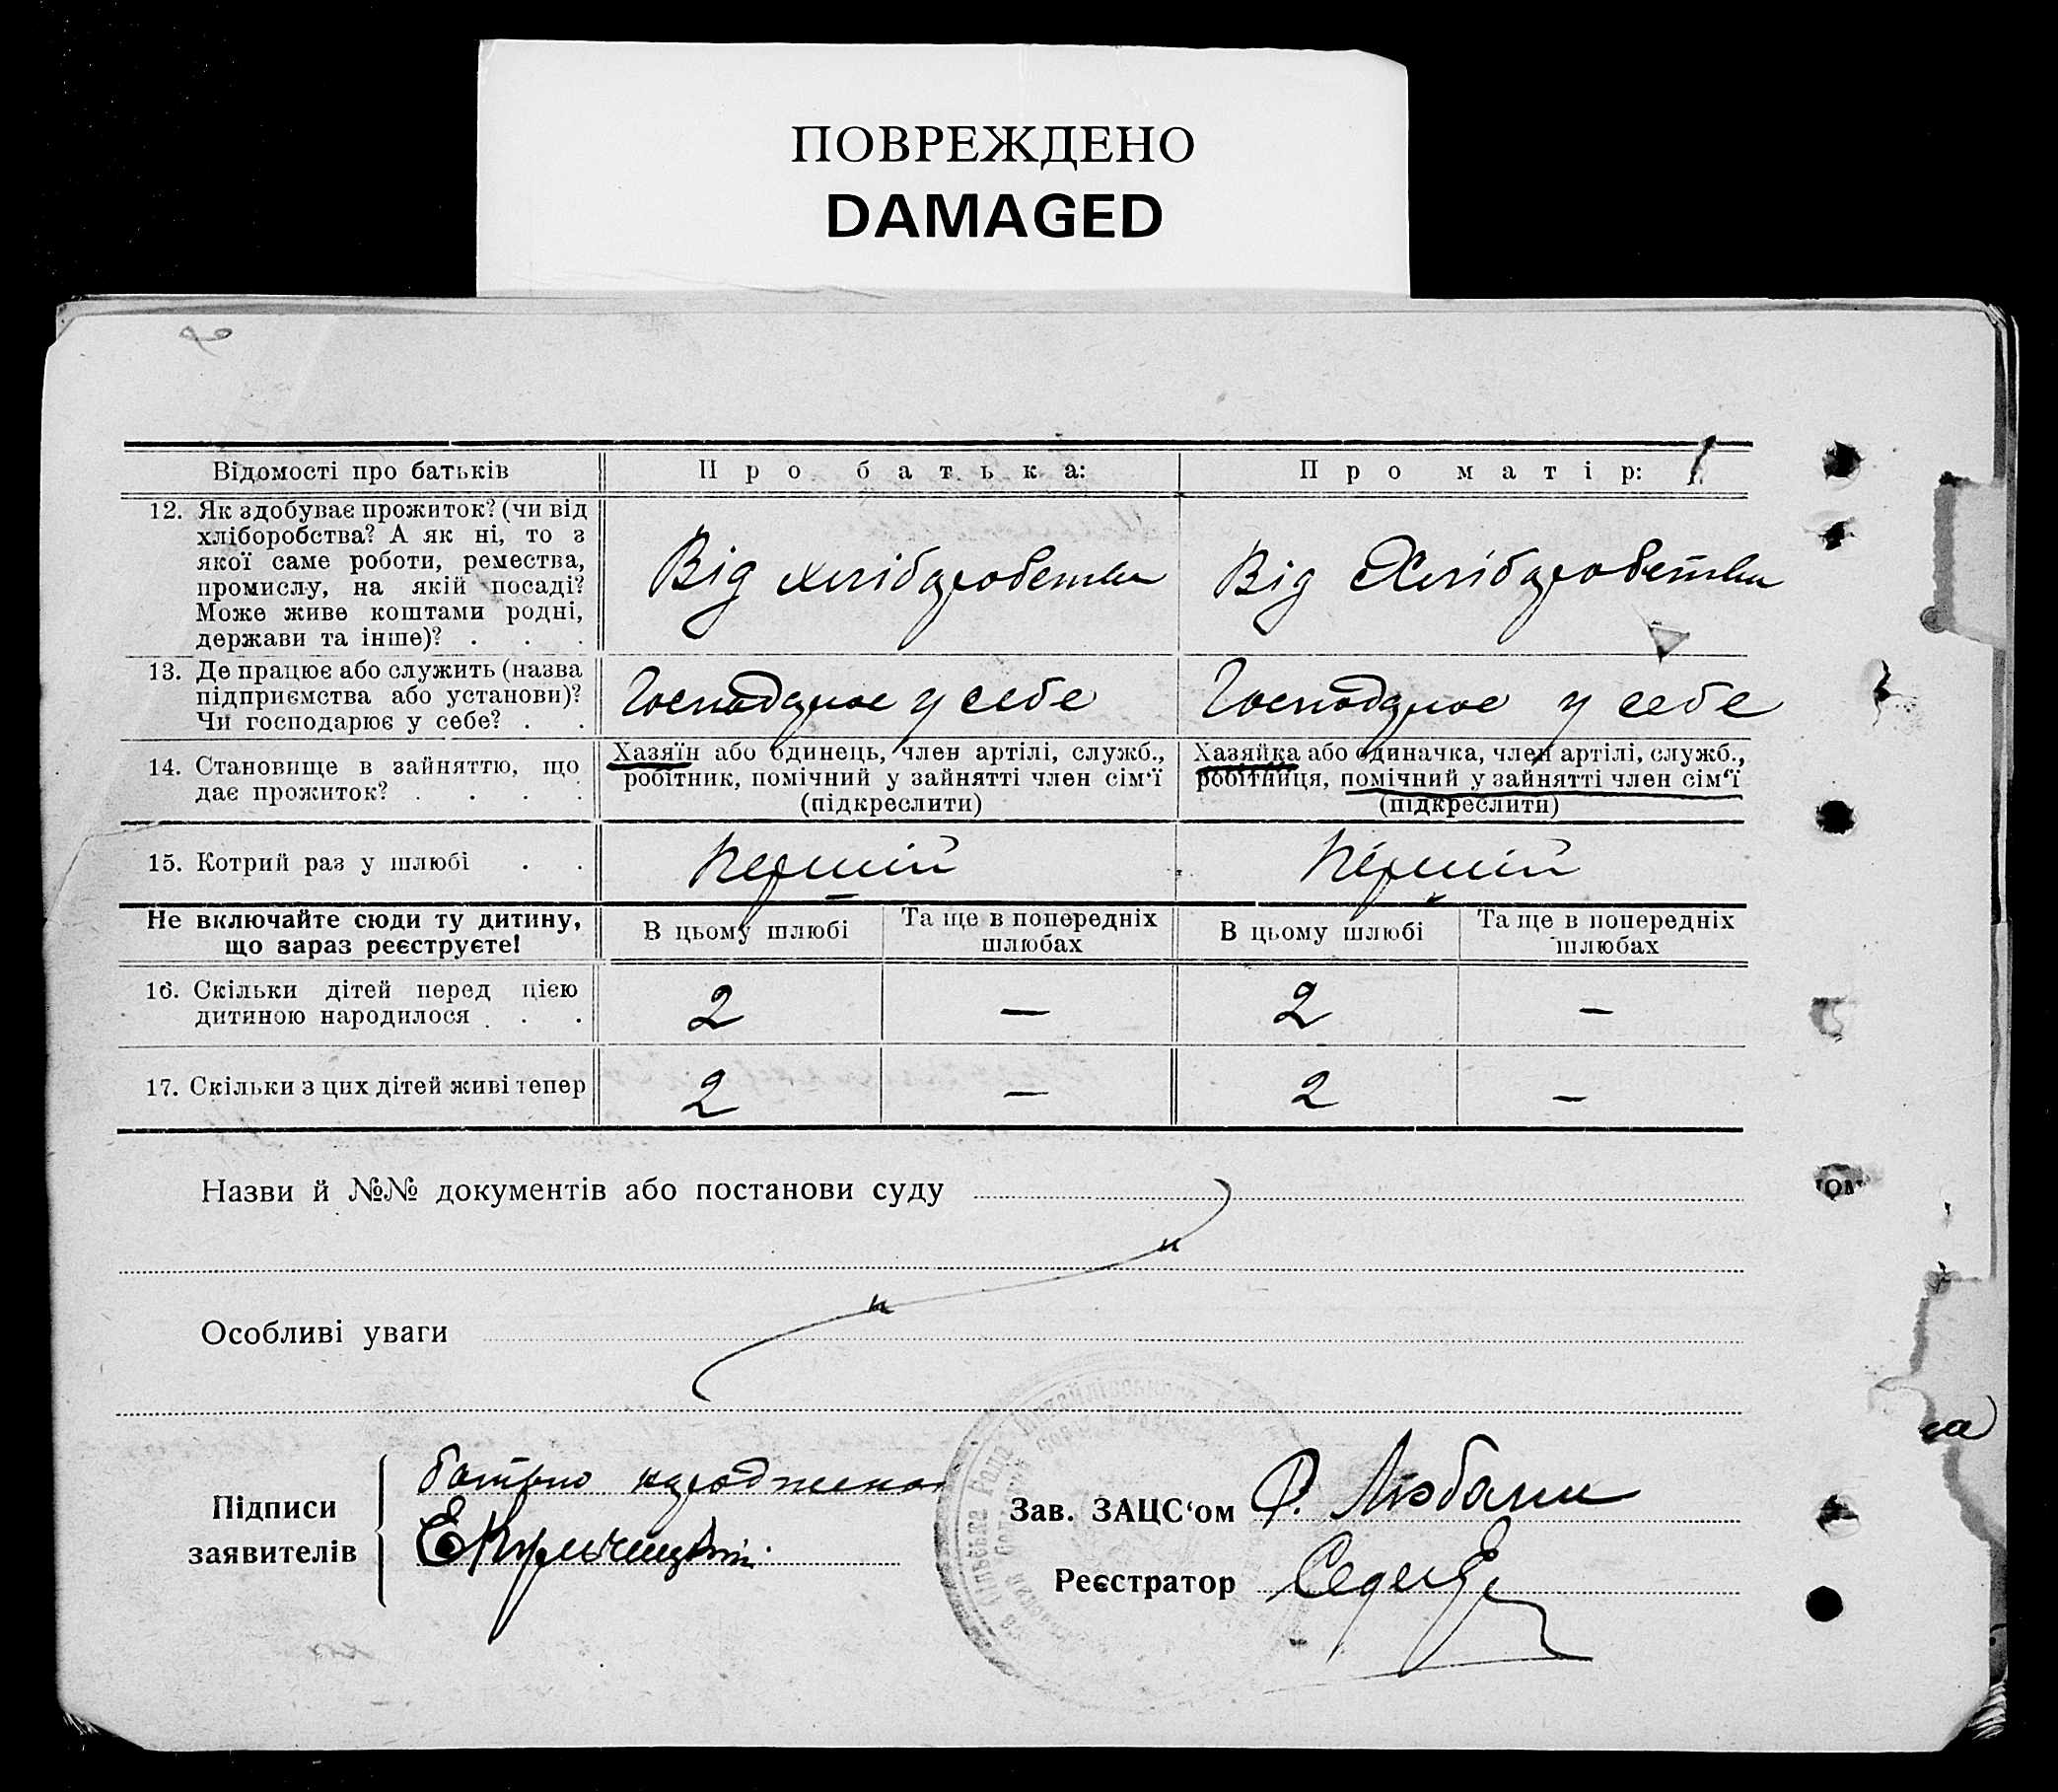 ПОВРЕЖДЕНО
DAMAGED
Відомості про батьків
Про батька:
Про матір:
12. Як здобуває прожиток? (чи від
хліборобства? А як ні, то з
якої саме роботи, ремества,
промислу, на якій посаді?
Може живе коштами родні,
держави та інше)? . . .
Від хліборобства
Від Хліборобства
13. Де працює або служить (назва
підприємства або установи)?
Чи господарює у себе? . .
Господарює у себе
Господарює у себе
14. Становище в зайняттю, що
дає прожиток? . . . .
Хазяїн або одинець, член артілі, служб.,
робітник, помічний у зайнятті член сім‘ї
(підкреслити)
Хазяйка або одиначка, член артілі, служб.,
робітниця, помічний у зайнятті член сім‘ї
(підкреслити)
15. Котрий раз у шлюбі . .
Першій
Першій
Не включайте сюди ту дитину,
що зараз реєструєте!
В цьому шлюбі
Та ще в попередніх
шлюбах
В цьому шлюбі
Та ще в попередніх
шлюбах
16. Скільки дітей перед цією
дитиною народилося . . .
2
—
2
—
17. Скільки з цих дітей живі тепер
2
—
2
—
Назви й №№ документів або постанови суду
Особливі уваги
Підписи
заявителів
батько
Зав. ЗАЦС‘ом
Реєстратор